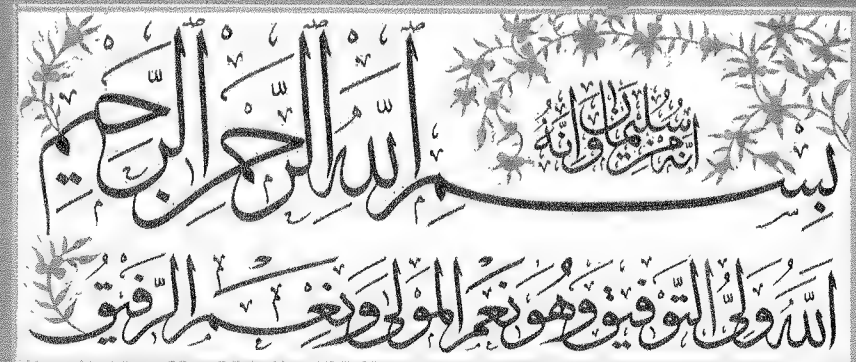 إنه من سليمان وإنه
بسم الله الرحمن الرحيم
الله ولي التوفيق وهو نعم المولى ونعم الرفيق